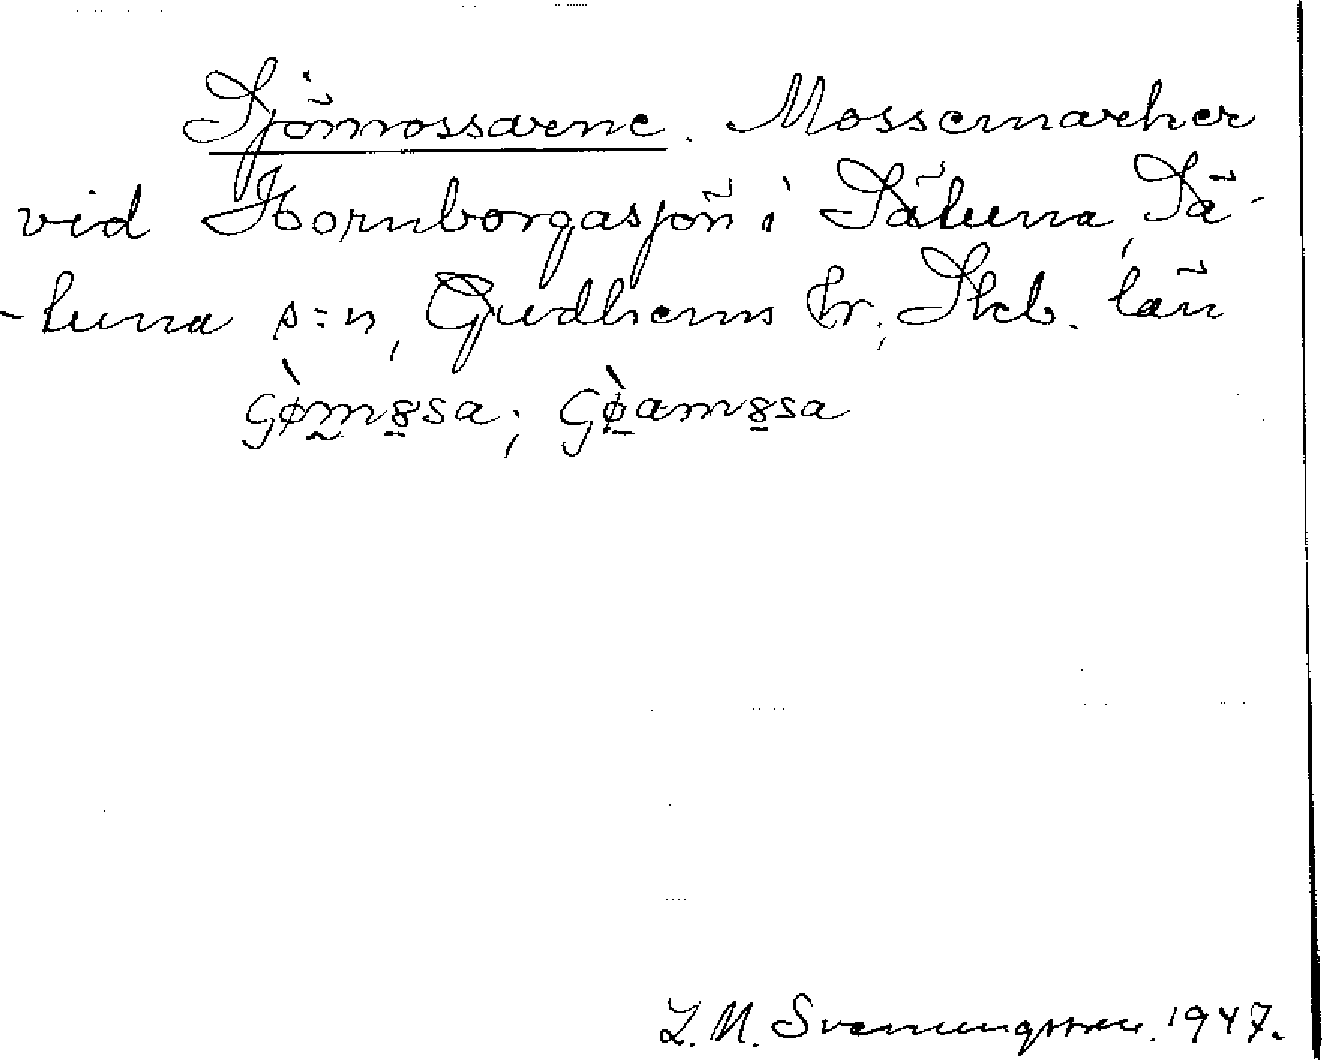 Sjömossarne. Mossemarker
vid Hornborgasjön i Sätuna, Sä-
-tuna s:n, Gudhems hr, Skb. län
ɢø̀mꞷsa; ɢø̀amꞷsa
L. M. Svenungsson. 1947.